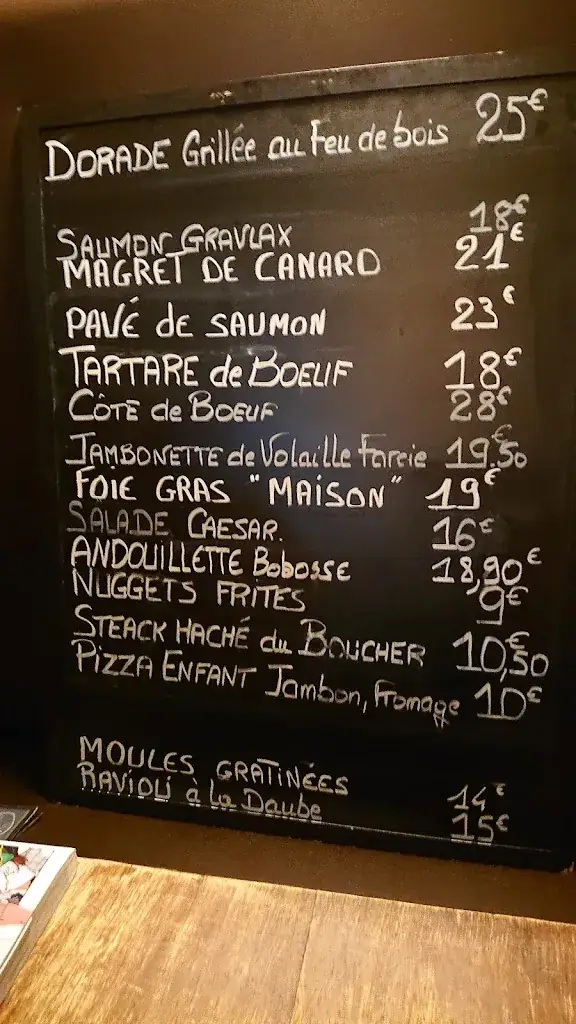 DORADE Grillée au Feu de bois 25€
SAUMON GRAVLAX 18€
MAGRET DE CANARD 21€
PAVÉ de SAUMON 23€
TARTARE de BOEUF 18€
CÔTE de BOEUF 28€
JAMBONETTE de Volaille Farcie 19,50€
FOIE GRAS "MAISON" 19€
SALADE CAESAR. 16€
ANDOUILLETTE Bobosse 18,90€
NUGGETS FRITES 9€
STEACK HACHÉ du BOUCHER 10,50€
PIZZA ENFANT Jambon, Fromage 10€
MOULES GRATINÉES 14€
RAVIOLI à la Daube 15€